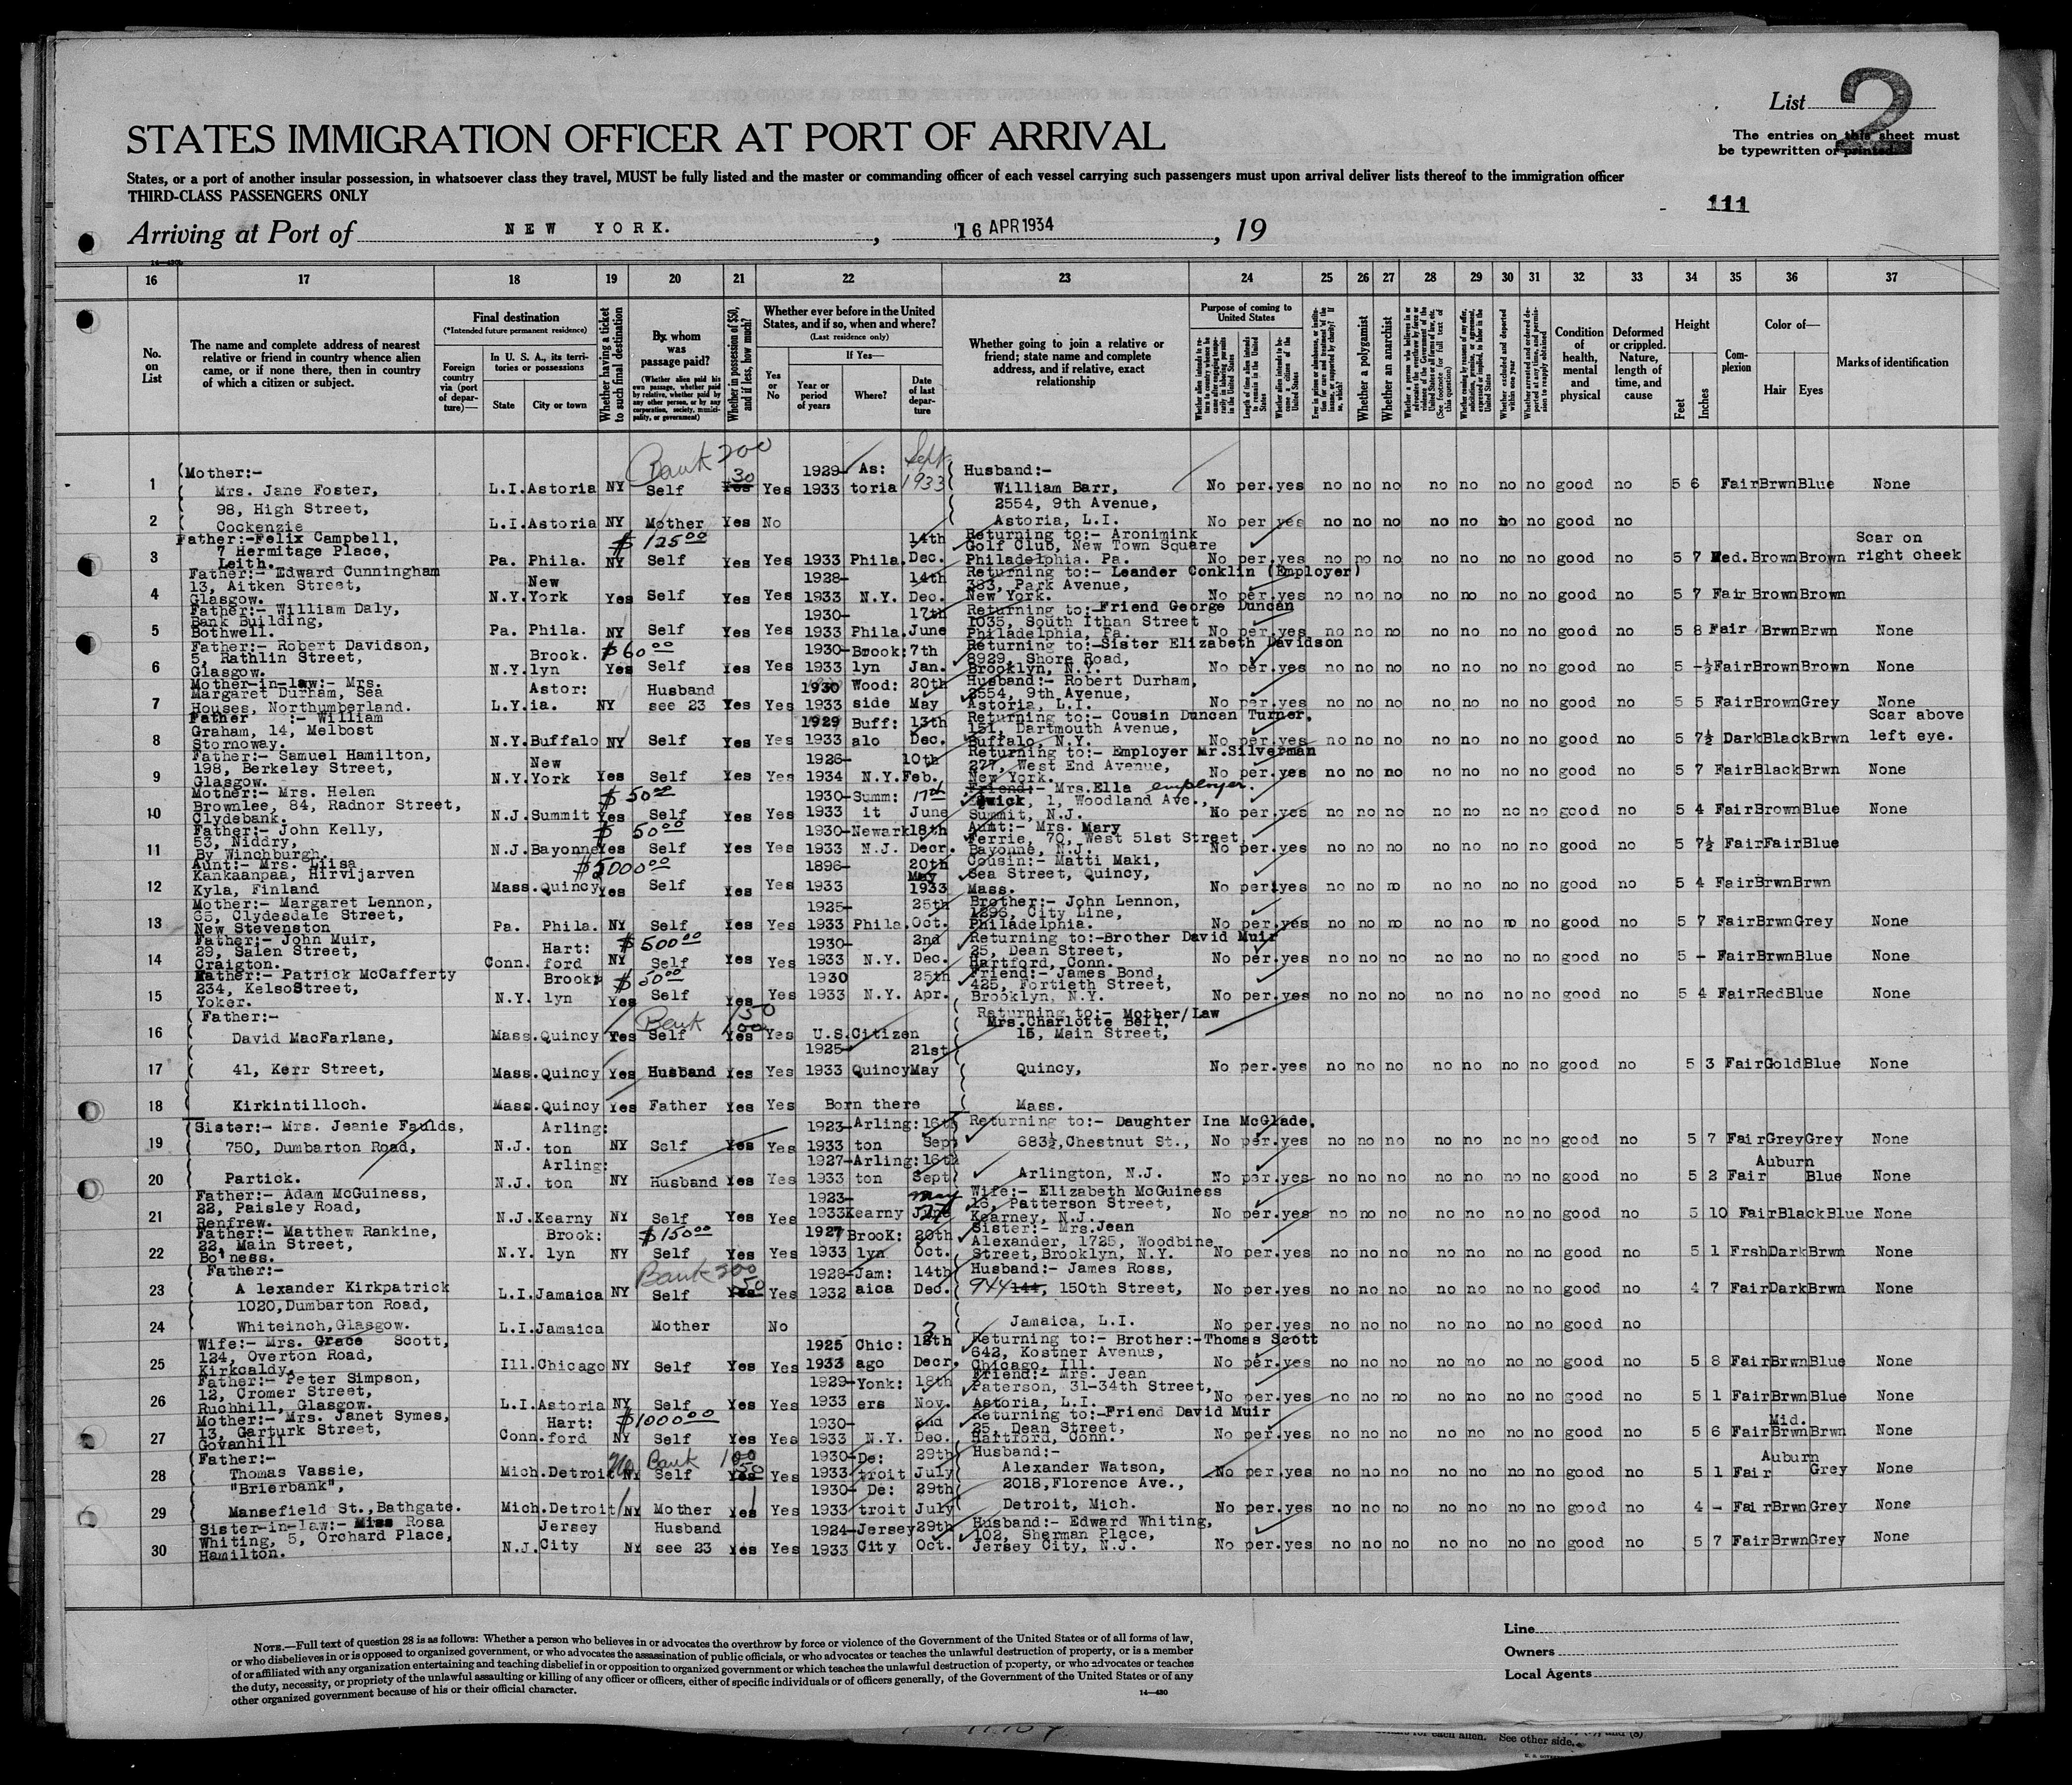 List 2
STATES IMMIGRATION OFFICER AT PORT OF ARRIVAL
The entries on this sheet must
be typewritten or printed.
States, or a port of another insular possession, in whatsoever class they travel, MUST be fully listed and the master or commanding officer of each vessel carrying such passengers must upon arrival deliver lists thereof to the immigration officer
THIRD-CLASS PASSENGERS ONLY
111
Arriving at Port of NEW YORK. , 16 APR 1934 , 19
16 17 18 19 20 21 22 23 24 25 26 27 28 29 30 31 32 33 34 35 36 37
No. on List
The name and complete address of nearest relative or friend in country whence alien came, or if none there, then in country of which a citizen or subject.
Final destination
(*Intended future permanent residence)
Foreign country via (port of departure)—
In U. S. A., its territories or possessions
State
City or town
Whether having a ticket to such final destination
By whom was passage paid?
(Whether alien paid his own passage, whether paid by relative, whether paid by any other person, or by any corporation, society, municipality, or government)
Whether in possession of $50, and if less, how much?
Whether ever before in the United States, and if so, when and where?
(Last residence only)
Yes or No
If Yes—
Year or period of years
Where?
Date of last departure
Whether going to join a relative or friend; state name and complete address, and if relative, exact relationship
Purpose of coming to United States
Whether a polygamist
Whether an anarchist
Condition of health, mental and physical
Deformed or crippled. Nature, length of time, and cause
Height
Feet
Inches
Complexion
Color of—
Hair
Eyes
Marks of identification
Bank 200 Sept
1 (Mother:- Mrs. Jane Foster, L.I. Astoria NY Self 30 Yes Yes 1929- 1933 As: toria 1933 Husband:- William Barr, No per. yes no no no no no no no good no 5 6 Fair Brwn Blue None
98, High Street, 2554, 9th Avenue,
2 Cockenzie L.I. Astoria NY Mother Yes No Astoria, L.I. No per yes no no no no no no no good no
3 Father:-Felix Campbell, 7 Hermitage Place, Leith. Pa. Phila. NY $125 00 Self Yes Yes 1933 Phila. 14th Dec. Returning to:- Aronimink Golf Club, New Town Square Philadelphia. Pa. No per. yes no no no no no no no good no 5 7 Med. Brown Brown Scar on right cheek
4 Father:- Edward Cunningham 13, Aitken Street, Glasgow. N.Y. New York Yes Self Yes Yes 1928- 1933 N.Y. 14th Dec. Returning to:- Leander Conklin (Employer) 383, Park Avenue, New York. No per. yes no no no no no no no good no 5 7 Fair Brown Brown
5 Father:- William Daly, Bank Building, Bothwell. Pa. Phila. NY Self Yes Yes 1930- 1933 Phila. 17th June Returning to:-Friend George Duncan 1035, South Ithan Street Philadelphia, Pa. No per. yes no no no no no no no good no 5 8 Fair Brwn Brwn None
6 Father:- Robert Davidson, 5, Rathlin Street, Glasgow. N.Y. Brook. lyn Yes $60 00 Self Yes Yes 1930- 1933 Brook: lyn 7th Jan. Returning to:-Sister Elizabeth Davidson 8929, Shore Road, Brooklyn, N.Y. No per. yes no no no no no no no good no 5 -½ Fair Brown Brown None
7 Mother-in-law:- Mrs. Margaret Durham, Sea Houses, Northumberland. L.Y. Astor: ia. NY Husband see 23 Yes Yes 1930 1933 Wood: side 20th May Husband:- Robert Durham, 2554, 9th Avenue, Astoria, L.I. No per. yes no no no no no no no good no 5 5 Fair Brown Grey None
8 Father :- William Graham, 14, Melbost Stornoway. N.Y. Buffalo NY Self Yes Yes 1929 1933 Buff: alo 13th Dec. Returning to:- Cousin Duncan Turner. 151, Dartmouth Avenue, Buffalo, N.Y. No per. yes no no no no no no no good no 5 7½ Dark Black Brwn Scar above left eye.
9 Father:- Samuel Hamilton, 198, Berkeley Street, Glasgow. N.Y. New York Yes Self Yes Yes 1926- 1934 N.Y. 10th Feb. Returning to:- Employer Mr.Silverman 277, West End Avenue, New York. No per. yes no no no no no no no good no 5 7 Fair Black Brwn None
10 Mother:- Mrs. Helen Brownlee, 84, Radnor Street, Clydebank. N.J. Summit Yes $50 00 Self Yes Yes 1930- 1933 Summ: it 17th June Friend:- Mrs.Ella employer. 1, Woodland Ave., Summit, N.J. No per. yes no no no no no no no good no 5 4 Fair Brown Blue None
11 Father:- John Kelly, 53, Niddry, By Winchburgh. N.J. Bayonne Yes $50 00 Self Yes Yes 1930- 1933 Newark N.J. 18th Decr. Aunt:- Mrs. Mary Ferrie, 70, West 51st Street, Bayonne, N.J. No per. yes no no no no no no no good no 5 7½ Fair Fair Blue
12 Aunt:- Mrs. Liisa Kankaanpaa, Hirvijarven Kyla, Finland Mass. Quincy Yes $5000 00 Self Yes Yes 1896- 1933 20th May 1933 Cousin:- Matti Maki, Sea Street, Quincy, Mass. No per yes no no no no no no no good no 5 4 Fair Brwn Brwn
13 Mother:- Margaret Lennon, 65, Clydesdale Street, New Stevenston Pa. Phila. NY Self Yes Yes 1925- 1933 Phila. 25th Oct. Brother:- John Lennon, 1296, City Line, Philadelphia. No per. yes no no no no no no no good no 5 7 Fair Brwn Grey None
14 Father:- John Muir, 29, Salen Street, Craigton. Conn. Hart: ford NY $500 00 Self Yes Yes 1930- 1933 N.Y. 2nd Dec. Returning to:-Brother David Muir 25, Dean Street, Hartford, Conn. No per. yes no no no no no no no good no 5 - Fair Brwn Blue None
15 Father:- Patrick McCafferty 234, KelsoStreet, Yoker. N.Y. Brook: lyn Yes $50 00 Self Yes Yes 1930 1933 N.Y. 25th Apr. Friend:- James Bond, 425, Fortieth Street, Brooklyn, N.Y. No per. yes no no no no no no no good no 5 4 Fair Red Blue None
16 Father:- David MacFarlane, Mass. Quincy Yes Bank Self Yes Yes U.S. Citizen Returning to:- Mother/Law Mrs.Charlotte Bell, 15, Main Street,
17 41, Kerr Street, Mass. Quincy Yes Husband Yes Yes 1925- 1933 Quincy 21st May Quincy, No per. yes no no no no no no no good no 5 3 Fair Gold Blue None
18 Kirkintilloch. Mass. Quincy Yes Father Yes Yes Born there Mass.
19 Sister:- Mrs. Jeanie Faulds, 750, Dumbarton Road, N.J. Arling: ton NY Self Yes Yes 1923- 1933 Arling: ton 16th Sep. Returning to:- Daughter Ina McGlade. 683½, Chestnut St., No per. yes no no no no no no no good no 5 7 Fair Grey Grey None
20 Partick. N.J. Arling: ton NY Husband Yes Yes 1927- 1933 Arling: ton 16th Sept Arlington, N.J. No per. yes no no no no no no no good no 5 2 Fair Auburn Blue None
21 Father:- Adam McGuiness, 22, Paisley Road, Renfrew. N.J. Kearny NY Self Yes Yes 1923- 1933 Kearny May June Wife:- Elizabeth McGuiness 16, Patterson Street, Kearney, N.J. No per. yes no no no no no no no good no 5 10 Fair Black Blue None
22 Father:- Matthew Rankine, 22, Main Street, Bo'ness. N.Y. Brook: lyn NY $150 00 Self Yes Yes 1927 1933 BrooK: lyn 20th Oct. Sister:- Mrs.Jean Alexander, 1725, Woodbine Street, Brooklyn, N.Y. No per. yes no no no no no no no good no 5 1 Frsh Dark Brwn None
23 Father:- A lexander Kirkpatrick L.I. Jamaica NY Bank 200 Self 50 Yes Yes 1928- 1932 Jam: aica 14th Dec. Husband:- James Ross, 944 144, 150th Street, No per. yes no no no no no no no good no 4 7 Fair Dark Brwn None
1020, Dumbarton Road,
24 Whiteinch, Glasgow. L.I. Jamaica Mother No Jamaica, L.I. No per. yes no no no no no no no good no
25 Wife:- Mrs. Grace Scott, 124, Overton Road, Kirkcaldy. Ill. Chicago NY Self Yes Yes 1925 1933 Chic: ago Decr. Returning to:- Brother:-Thomas Scott 642, Kostner Avenue, Chicago, Ill. No per. yes no no no no no no no good no 5 8 Fair Brwn Blue None
26 Father:- Peter Simpson, 12, Cromer Street, Ruchhill, Glasgow. L.I. Astoria NY Self Yes Yes 1929- 1933 Yonk: ers 18th Nov. Friend:- Mrs. Jean Paterson, 31-34th Street, Astoria, L.I. No per. yes no no no no no no no good no 5 1 Fair Brwn Blue None
27 Mother:- Mrs. Janet Symes, 13, Garturk Street, Govanhill Conn. Hart: ford NY $1000 00 Self Yes Yes 1930- 1933 N.Y. 2nd Dec. Returning to:-Friend David Muir 25, Dean Street, Hartford, Conn. No per. yes no no no no no no no good no 5 6 Fair Mid. Brwn Brwn None
28 Father:- Thomas Vassie, "Brierbank", Mich. Detroit NY Bank 100 Self 50 Yes Yes 1930- 1933 De: troit 29th July Husband:- Alexander Watson, 2018, Florence Ave., No per. yes no no no no no no no good no 5 1 Fair Auburn Grey None
29 Mansefield St., Bathgate. Mich. Detroit NY Mother Yes Yes 1930- 1933 De: troit 29th July Detroit, Mich. No per. yes no no no no no no no good no 4 - Fair Brwn Grey None
30 Sister-in-law:- Miss Rosa Whiting, 5, Orchard Place, Hamilton. N.J. Jersey City NY Husband see 23 Yes Yes 1924- 1933 Jersey City 29th Oct. Husband:- Edward Whiting, 102, Sherman Place, Jersey City, N.J. No per. yes no no no no no no no good no 5 7 Fair Brwn Grey None
NOTE.—Full text of question 28 is as follows: Whether a person who believes in or advocates the overthrow by force or violence of the Government of the United States or of all forms of law,
or who disbelieves in or is opposed to organized government, or who advocates the assassination of public officials, or who advocates or teaches the unlawful destruction of property, or is a member
of or affiliated with any organization entertaining and teaching disbelief in or opposition to organized government or which teaches the unlawful destruction of property, or who advocates or teaches
the duty, necessity, or propriety of the unlawful assaulting or killing of any officer or officers, either of specific individuals or of officers generally, of the Government of the United States or of any
other organized government because of his or their official character.
14—430
Line
Owners
Local Agents
for each alien. See other side.